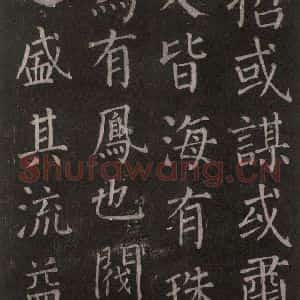 或謀或肅
皆海有珠
有鳳也閥
盛其流益
Shufawang.CN